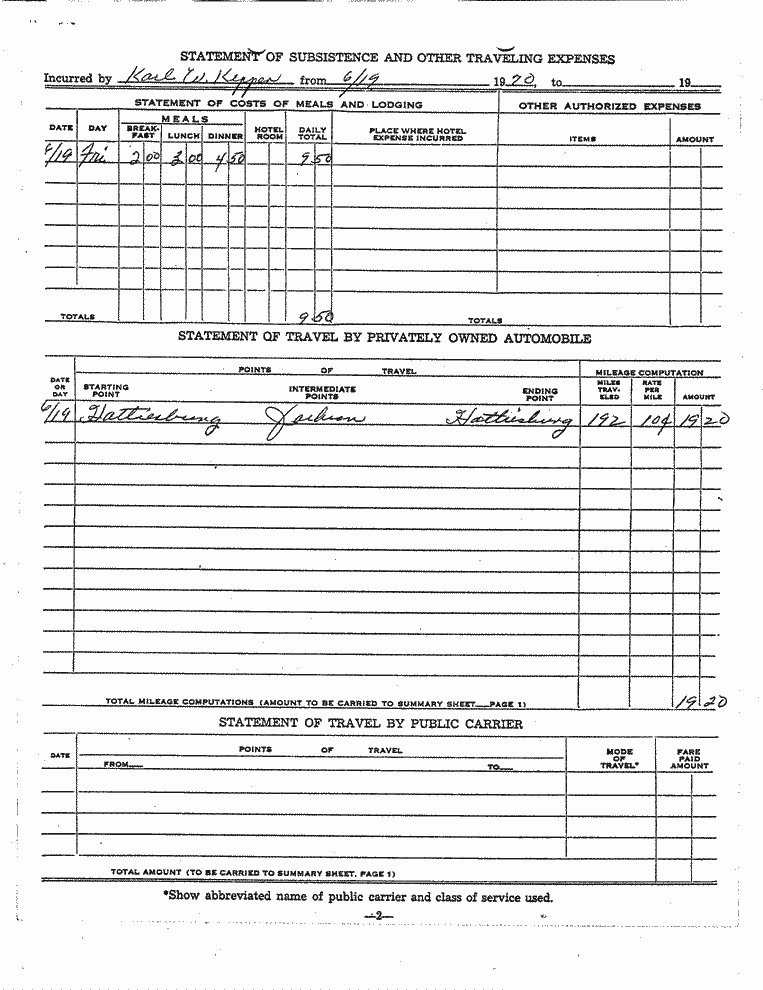 STATEMENT OF SUBSISTENCE AND OTHER TRAVELING EXPENSES
Incurred by Karl W. from 6/19 1970, to 19
STATEMENT OF COSTS OF MEALS AND LODGING OTHER AUTHORIZED EXPENSES
DATE DAY MEALS BREAK-FAST LUNCH DINNER HOTEL ROOM DAILY TOTAL PLACE WHERE HOTEL EXPENSE INCURRED ITEMS AMOUNT
6/19 Fri 2 00 3 00 4 50 9 50
TOTALS 9 50 TOTALS
STATEMENT OF TRAVEL BY PRIVATELY OWNED AUTOMOBILE
POINTS OF TRAVEL MILEAGE COMPUTATION
DATE OR DAY STARTING POINT INTERMEDIATE POINTS ENDING POINT MILES TRAV-ELED RATE PER MILE AMOUNT
6/19 Hattiesburg Jackson Hattiesburg 192 10¢ 19 20
TOTAL MILEAGE COMPUTATIONS (AMOUNT TO BE CARRIED TO SUMMARY SHEET—PAGE 1) 19 20
STATEMENT OF TRAVEL BY PUBLIC CARRIER
DATE POINTS OF TRAVEL MODE OF TRAVEL* FARE PAID AMOUNT
FROM— TO—
TOTAL AMOUNT (TO BE CARRIED TO SUMMARY SHEET, PAGE 1)
*Show abbreviated name of public carrier and class of service used.
—2—